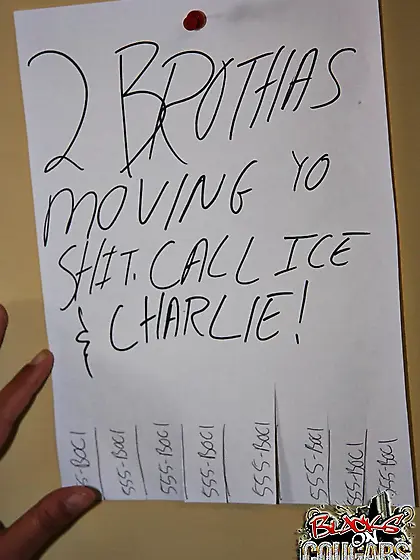 2 BROTHAS
MOVING YO
SHIT. CALL ICE
& CHARLIE!
555-BOC1
555-BOC1
555-BOC1
555-BOC1
555-BOC1
555-BOC1
555-BOC1
555-BOC1
BLACKS
ON
COUGARS